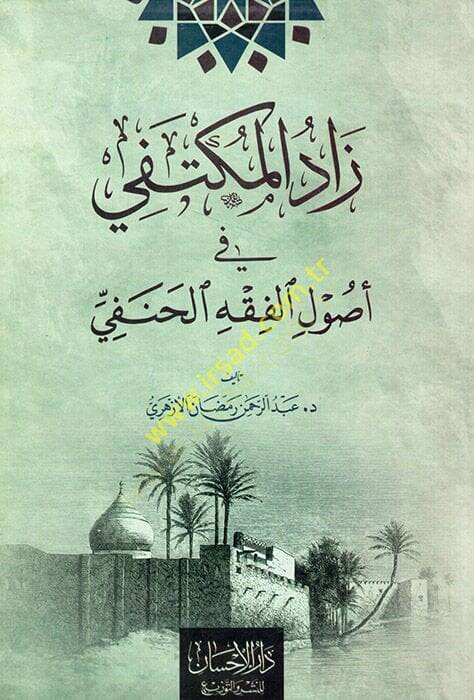 زَادُ المُكْتَفِي
فِي
أصُوْلِ الفِقْهِ الحَنَفِيِّ
تأليف
د. عَبْدُ الرَّحمن رَمَضَان الأزْهَرِيُّ
www.irsad.com.tr
دَارُ الإحْسَان
للنشر والتوزيع